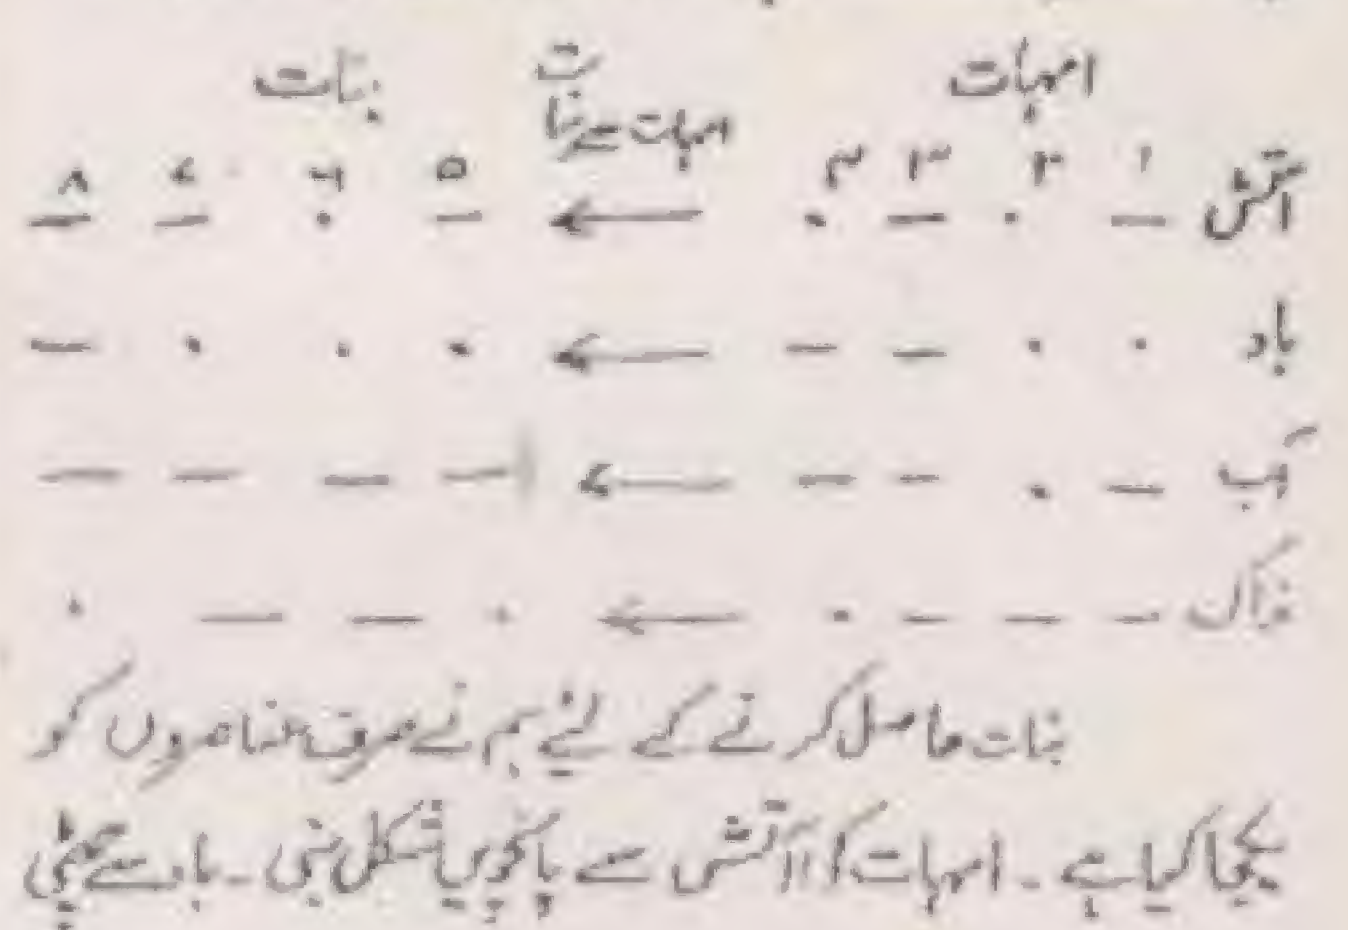 امہات امہات سے بنات بنات
۱ ۲ ۳ ۴ ۵ ۶ ۷ ۸
آتش — . — . ← — . — —
باد . . — — ← . . . —
آب — . — — ← — — — —
خاک — — — . ← . — — .
بنات حاصل کرنے کے لئے ہم نے صرف عناصروں کو
یکجا کیا ہے ۔ امہات کی آتش سے پانچویں شکل بنی ۔ باد سے چھٹی